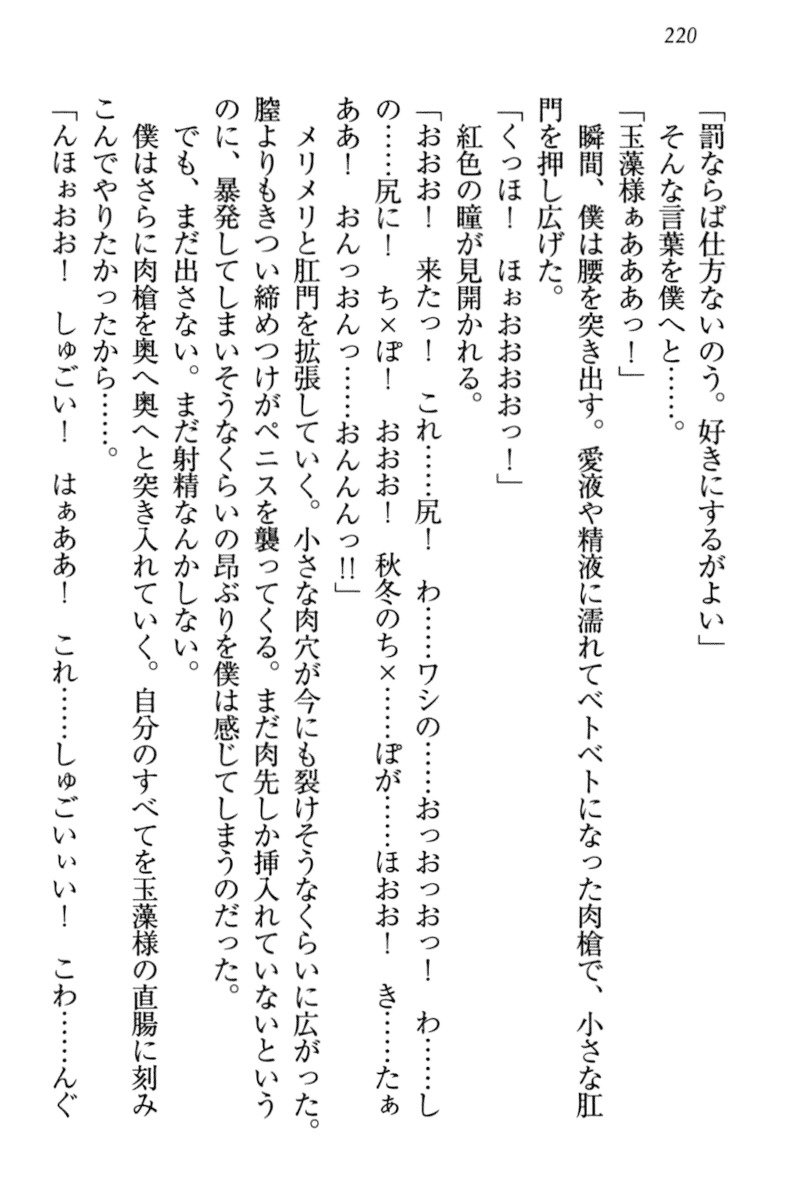 220
「罰ならば仕方ないのう。好きにするがよい」
そんな言葉を僕へと……。
「玉藻様ぁあああっ！」
瞬間、僕は腰を突き出す。愛液や精液に濡れてベトベトになった肉槍で、小さな肛
門を押し広げた。
「くっほ！　ほぉおおおおっ！」
紅色の瞳が見開かれる。
「おおお！　来たっ！　これ……尻！　わ……ワシの……おっおっおっ！　わ……し
の……尻に！　ち×ぽ！　おおお！　秋冬のち×……ぽが……ほおお！　き……たぁ
ああ！　おんっおんっ……おんんんっ!!」
メリメリと肛門を拡張していく。小さな肉穴が今にも裂けそうなくらいに広がった。
膣よりもきつい締めつけがペニスを襲ってくる。まだ肉先しか挿入れていないという
のに、暴発してしまいそうなくらいの昂ぶりを僕は感じてしまうのだった。
でも、まだ出さない。まだ射精なんかしない。
僕はさらに肉槍を奥へ奥へと突き入れていく。自分のすべてを玉藻様の直腸に刻み
こんでやりたかったから……。
「んほぉおお！　しゅごい！　はぁああ！　これ……しゅごいぃい！　こわ……んぐ